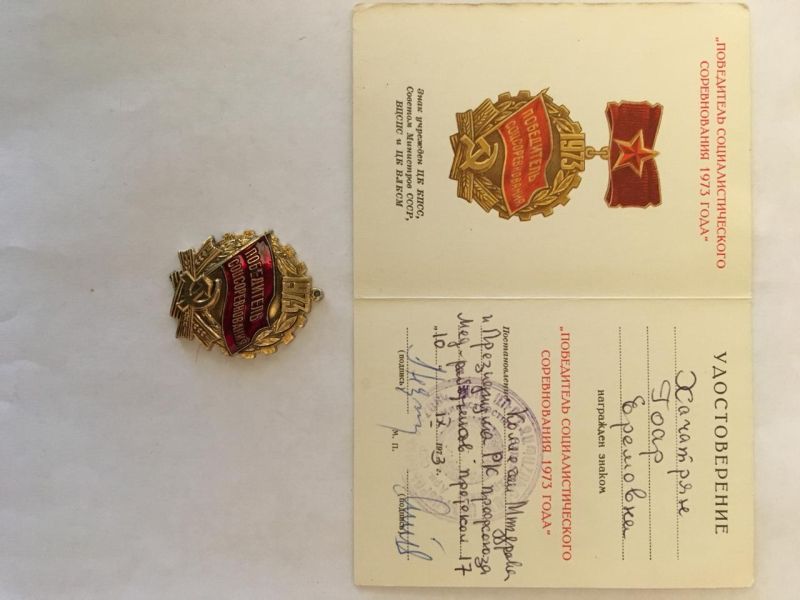 „ПОБЕДИТЕЛЬ СОЦИАЛИСТИЧЕСКОГО
СОРЕВНОВАНИЯ 1973 ГОДА"
1973
ПОБЕДИТЕЛЬ
СОЦСОРЕВНОВАНИЯ
Знак учрежден ЦК КПСС,
Советом Министров СССР,
ВЦСПС и ЦК ВЛКСМ
УДОСТОВЕРЕНИЕ
Хачатрян
Гоар
Еремовна
награжден знаком
„ПОБЕДИТЕЛЬ СОЦИАЛИСТИЧЕСКОГО
СОРЕВНОВАНИЯ 1973 ГОДА"
Постановление Коллегии
и Президиума РК профсоюза
мед. работников протокол 17
„10" IX 1973 г.
(подпись) М. П. (подпись)
1973
ПОБЕДИТЕЛЬ
СОЦСОРЕВНОВАНИЯ